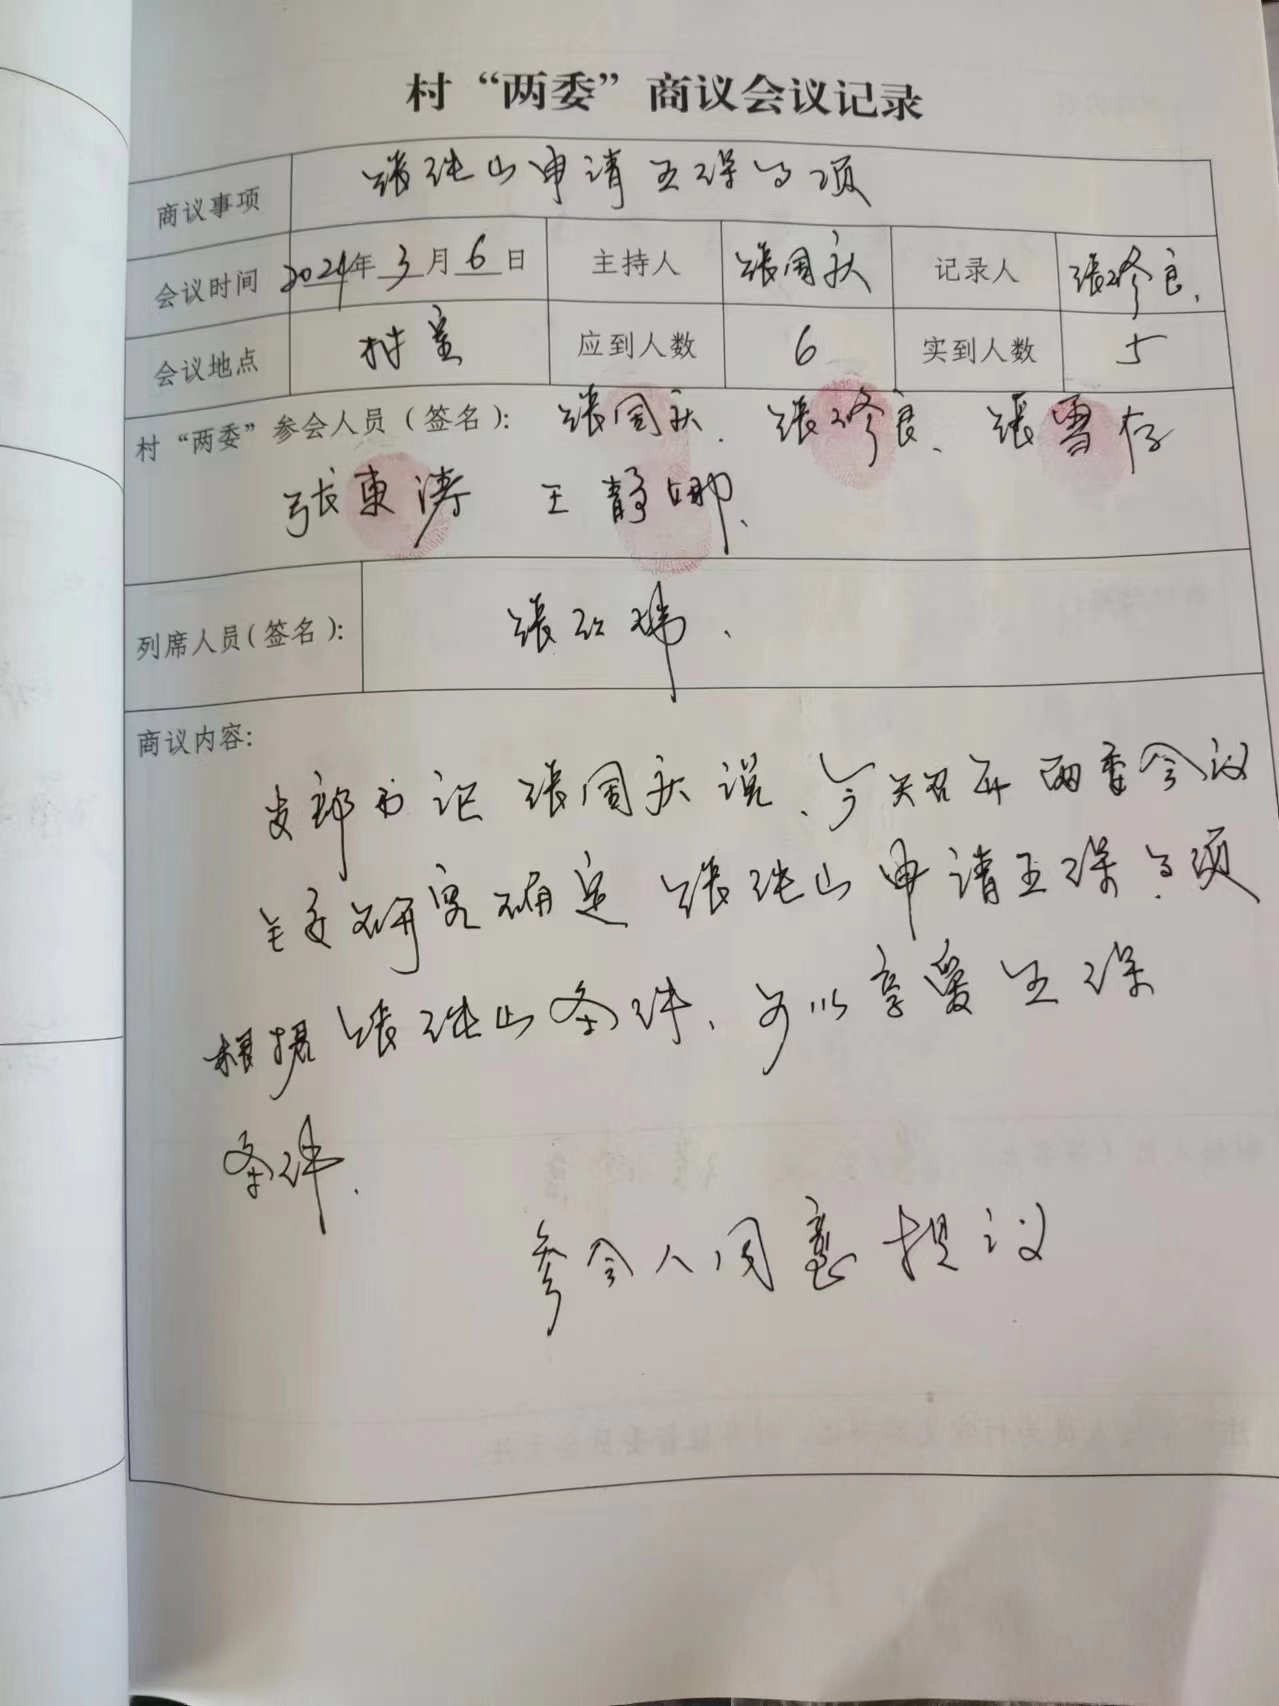 村“两委”商议会议记录
商议事项 张继山申请五保事项
会议时间 2024年3月6日 主持人 张国庆 记录人 张修良
会议地点 村室 应到人数 6 实到人数 5
村“两委”参会人员（签名）： 张国庆、张修良、张雪存
张東涛 王静娜、
列席人员（签名）： 张红伟、
商议内容：
支部书记张国庆说、今天召开两委会议
主要研究确定张继山申请五保事项
根据张继山条件、可以享受五保
条件.
参会人同意提议